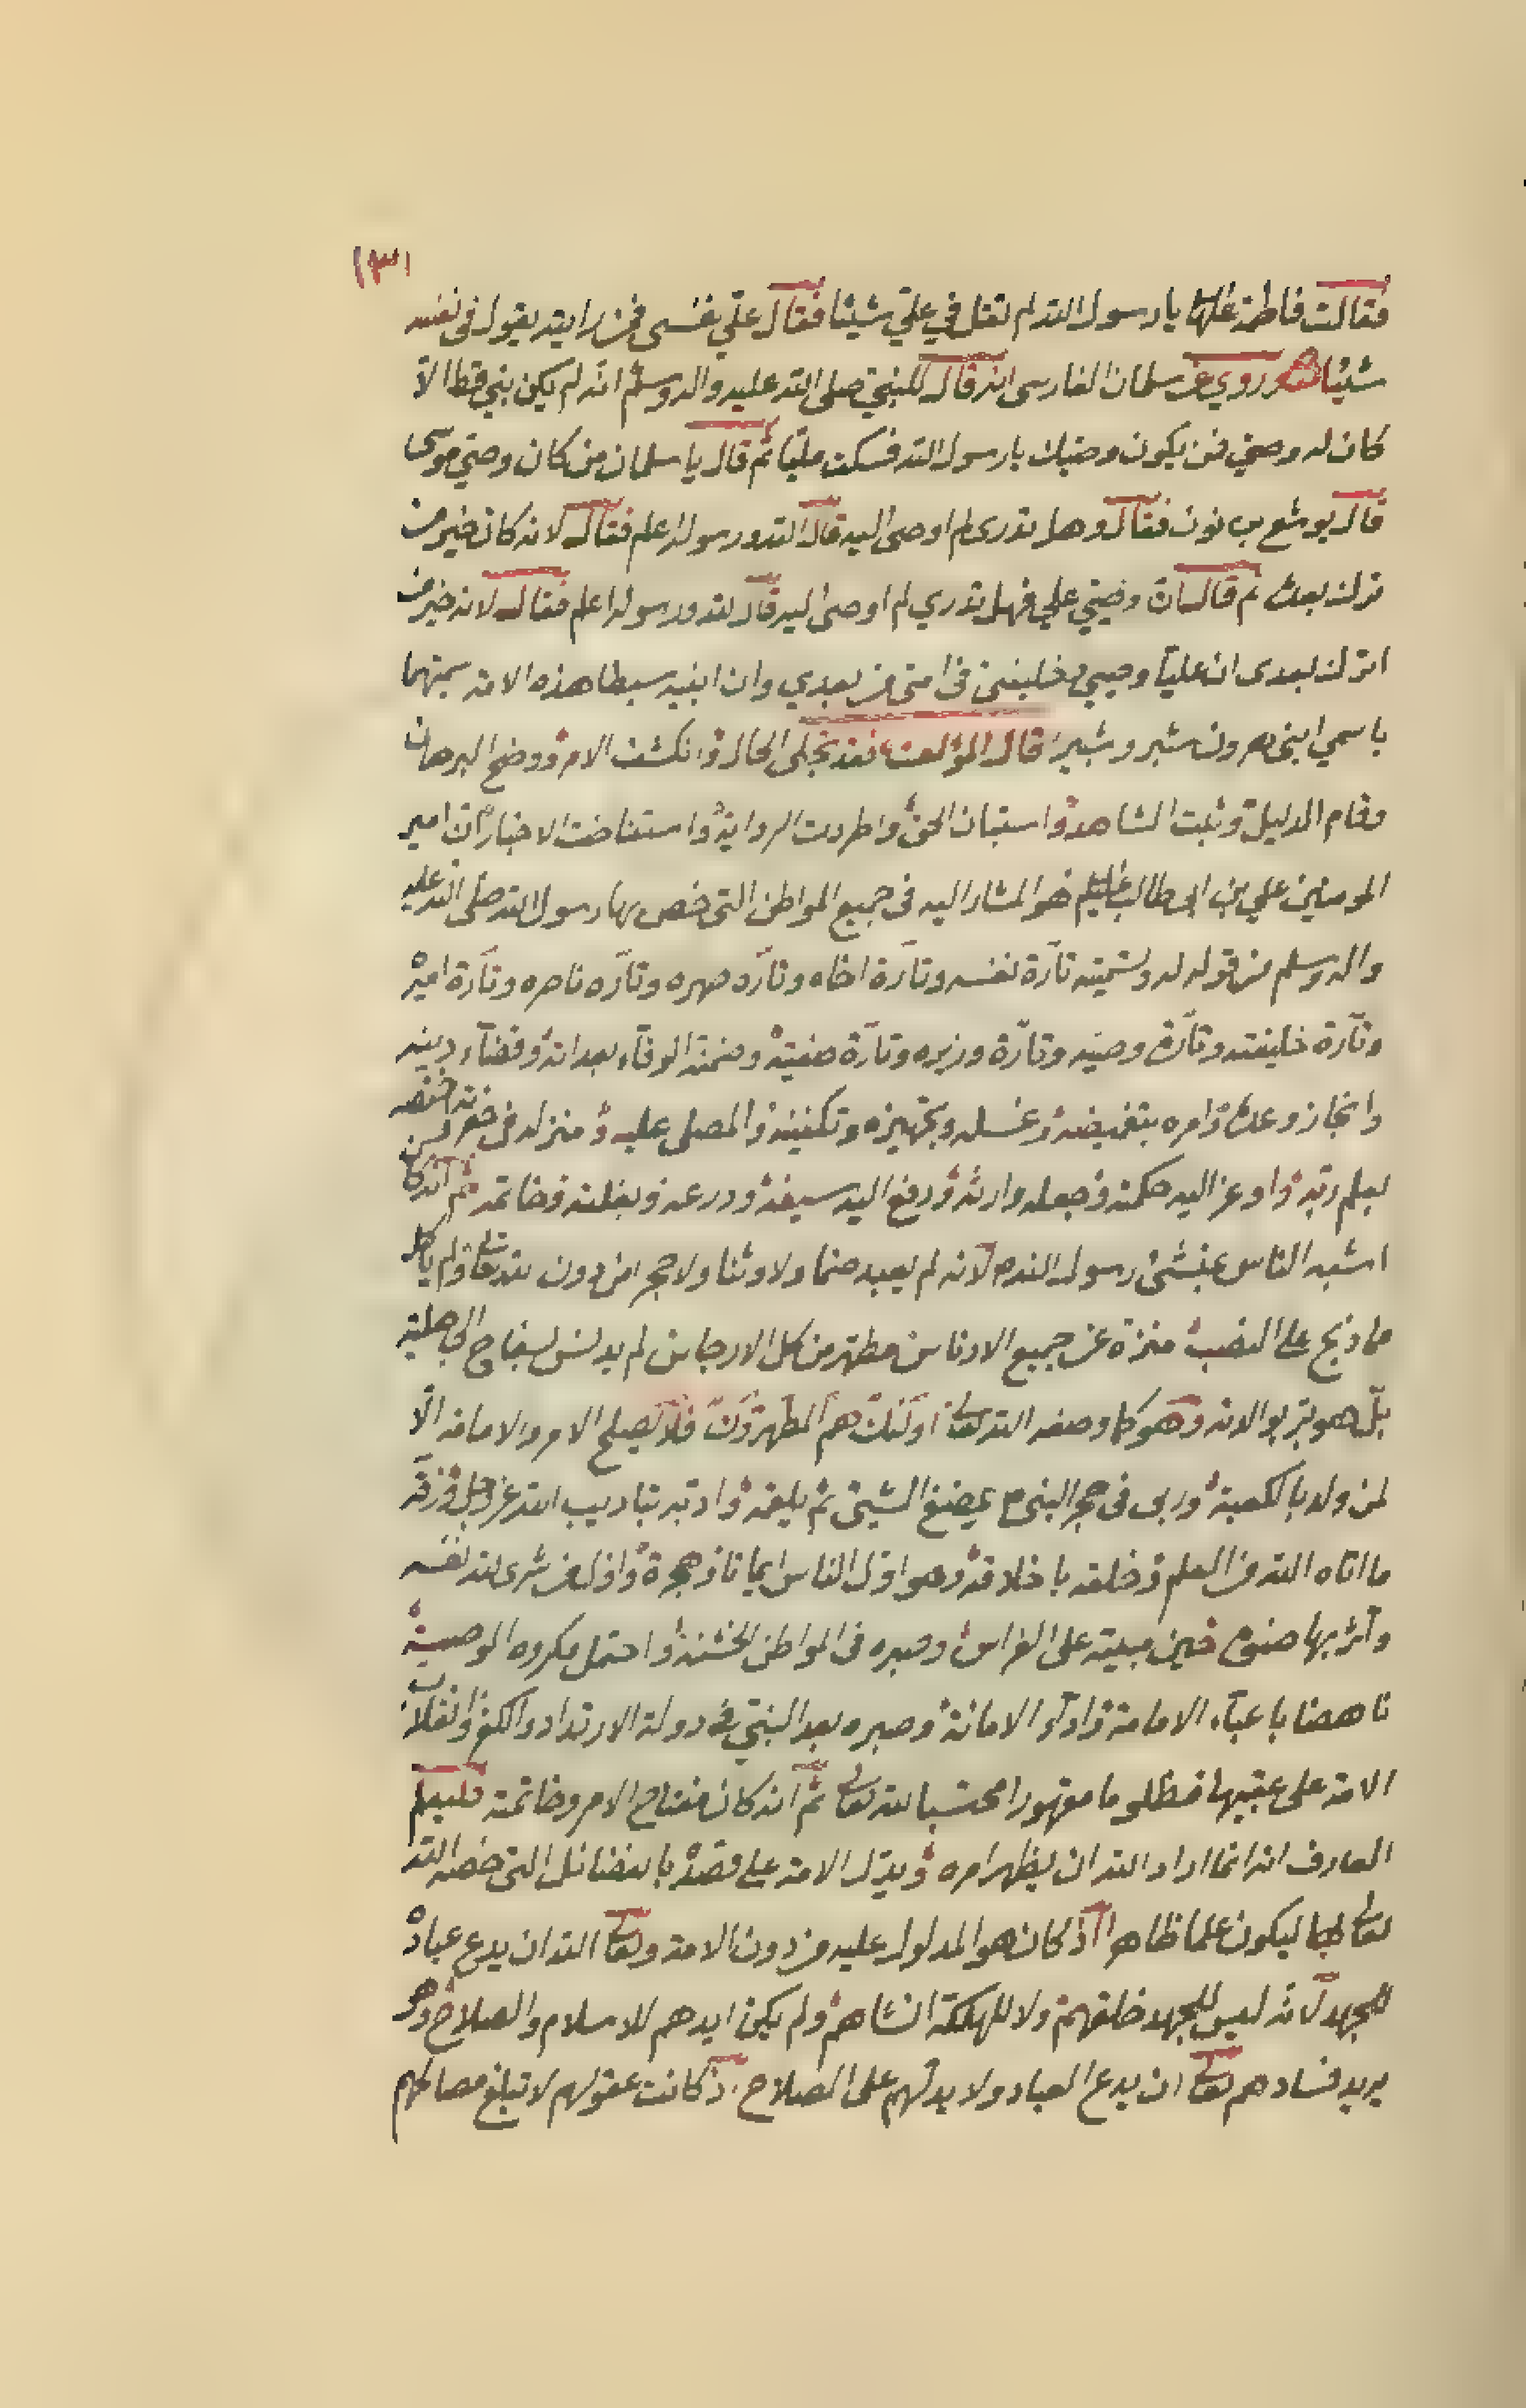 (٣١
فقالت فاطمة عليها يا رسول الله لم تقل في عليّ شيئا فقال عليّ نفسى فمن رايته يقول فى نفسه
شيئا وروي عن سلمان الفارسى انه قال للنبيّ صلى الله عليه واله وسلم انه لم يكن بني قط الاّ
كان له وصيّ فمن يكون وصيك يا رسول الله فسكت مليّا ثم قال يا سلمان من كان وصيّ موسى
قال يوشع بن نون فقال وهل تدرى لم اوصى اليه قال الله ورسوله اعلم فقال لانه كان خير من
ترك بعده ثم قال ان وصيّي علي فهل تدري لم اوصى اليه قال الله ورسوله اعلم فقال لانه خير من
اترك بعدى ان عليّا وصيي وخليفتى فى امتى من بعدي وان ابنيه سبطا هذه الامة سميتهما
باسمي ابنى هرون شبر وشبير قال المؤلف فقد تجلى الحال وانكشف الامر ووضح البرهان
وقام الدليل وثبت الشاهد واستبان الحق واطردت الرواية واستفاضت الاخبار ان امير
المومنين علي بن ابى طالب عليلم هو المشار اليه فى جميع المواطن التى خص بها رسول الله صلى الله عليه
واله وسلم من قوله له وتسميته تآرة نفسه وتآرة اخاه وتآره صهره وتآره ناصره وتآرة اميره
وتآرة خليفته وتآرة وصيه وتآرة وزيره وتآرة صفيته وضمنه الوفاء بعداته وقضآء دينه
وانجاز وعده وامره بتغميضه وغسله وتجهيزه وتكفينه والمصلى عليه ومنزله فى حفرته خصه
بعلم ربه واوعز اليه حكمته وجعله وارثه ودفع اليه سيفه ودرعه وبغلته وخاتمه ثم انه كان من
اشبه الناس رسول الله ص لانه لم يعبد صنما ولا وثنا ولا حجرا من دون الله تعالى ولم ياكل
ما ذبح على النصب منزه عن جميع الادناس مطهر من كل الارجاس لم يدنس بسفاح الجاهلية
بل هو بر بوالديه وهو كما وصفه الله تعالى اولئك هم المطهرون فلا يصلح الامر والامامة الاّ
لمن ولد بالكعبة وربى فى حجر النبى ص يمضغ الشيئ ثم يلقمه وادبه بتاديب الله عز وجل وزقه
ما اتاه الله من العلم وخلقه باخلاقه وهو اول الناس ايمانا وهجرة واول من شرى لله نفسه
وآثر بها صنوه حين مبيته على الفراش وصبره فى المواطن الخشنة واحتمل مكروه الوصية
ناهضا باعبآء الامامة وادآء الامانة وصبره بعد النبيّ فى دولة الارتداد والكفر وانقلاب
الامة على عقبيها مظلوما مقهورا محتسبا لله تعالى ثم انه كان مفتاح الامر وخاتمته فليعلم
العارف انه انما اراد الله ان يظهر امره ويدل الامة على قصده بالفضائل التى خصه الله
تعالى بها ليكون علما ظاهرا اذ كان هو المدلول عليه من دون الامة وتعالى الله ان يدع عباده
للجهد لانه ليس للجهد خلقهم ولا للهلكة انشاهم ولم يكن ايدهم للاسلام والصلاح وهو
يريد فسادهم تعالى ان يدع العباد ولا يدلهم على الصلاح اذ كانت عقولهم لا تبلغ مصالحهم